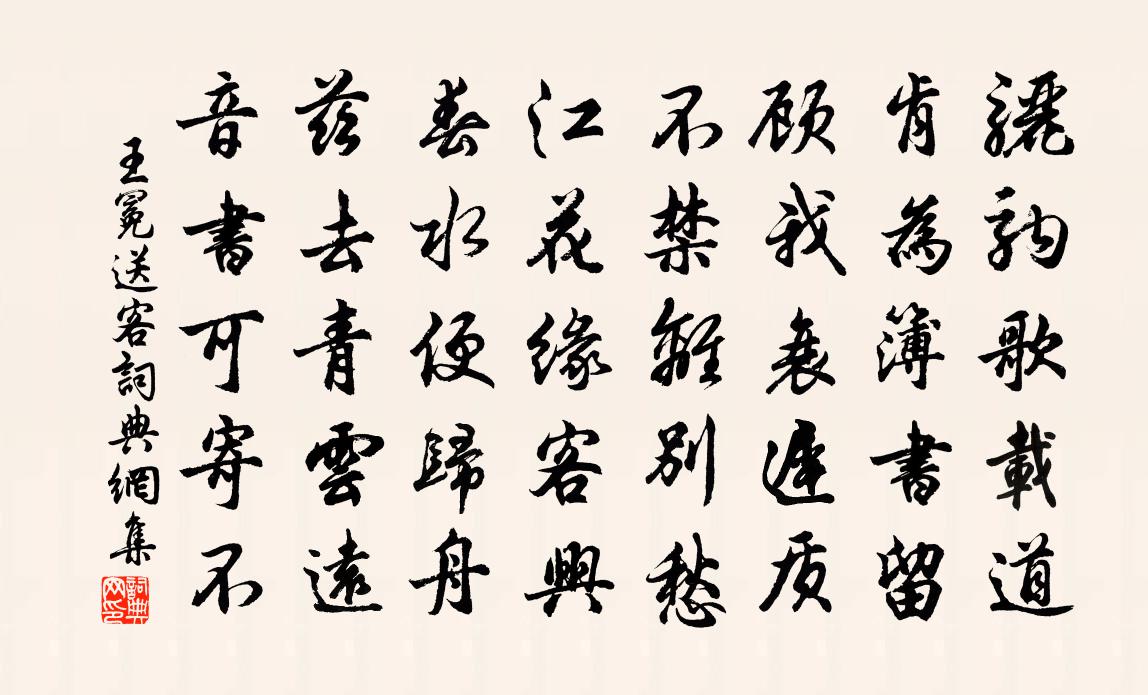 驪駒歌載道
肯為簿書留
顾我衰遲质
不禁離別愁
江花緣客興
春水便歸舟
茲去青雲遠
音書可寄不
王冕送客詞典網集
詞典网印